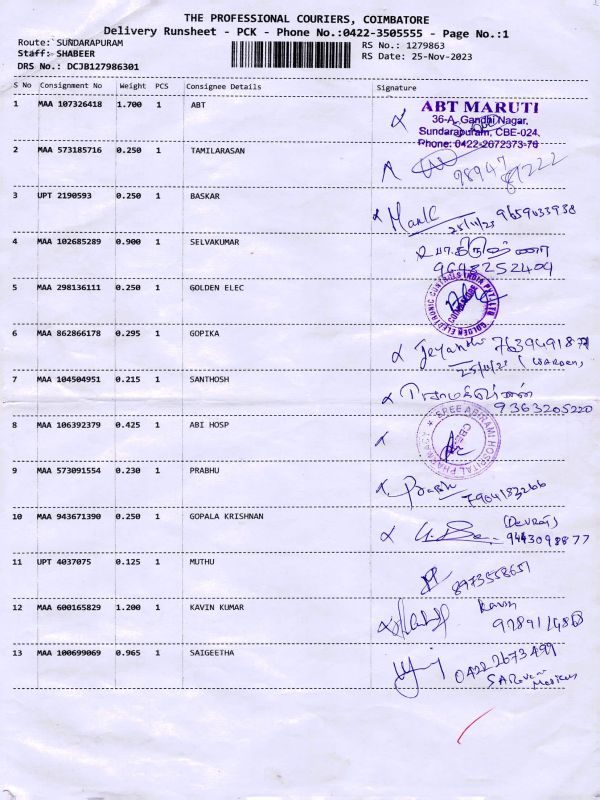 THE PROFESSIONAL COURIERS, COIMBATORE
Delivery Runsheet - PCK - Phone No.:0422-3505555 - Page No.:1
Route: SUNDARAPURAM
Staff: SHABEER
DRS No.: DCJB127986301
RS No.: 1279863
RS Date: 25-Nov-2023
S No Consignment No Weight PCS Consignee Details Signature
1 MAA 107326418 1.700 1 ABT
ABT MARUTI
36-A, Gandhi Nagar,
Sundarapuram, CBE-024.
Phone: 0422-2672373-76
2 MAA 573185716 0.250 1 TAMILARASAN
98947
3 UPT 2190593 0.250 1 BASKAR
25/11/23 9659033938
4 MAA 102685289 0.900 1 SELVAKUMAR
5 MAA 298136111 0.250 1 GOLDEN ELEC
GOLDEN ELECTRONIC CONTROLS INDIA PVT. LTD
COIMBATORE
6 MAA 862866178 0.295 1 GOPIKA
25/11/23 (WARDEN)
7 MAA 104504951 0.215 1 SANTHOSH
9363205220
8 MAA 106392379 0.425 1 ABI HOSP
SREE ABIRAMI HOSPITAL PHARMACY
9 MAA 573091554 0.230 1 PRABHU
7904183266
10 MAA 943671390 0.250 1 GOPALA KRISHNAN
(Devraj)
9443098877
11 UPT 4037075 0.125 1 MUTHU
8973558651
12 MAA 600165829 1.200 1 KAVIN KUMAR
Kavin
13 MAA 100699069 0.965 1 SAIGEETHA
0422 2673499